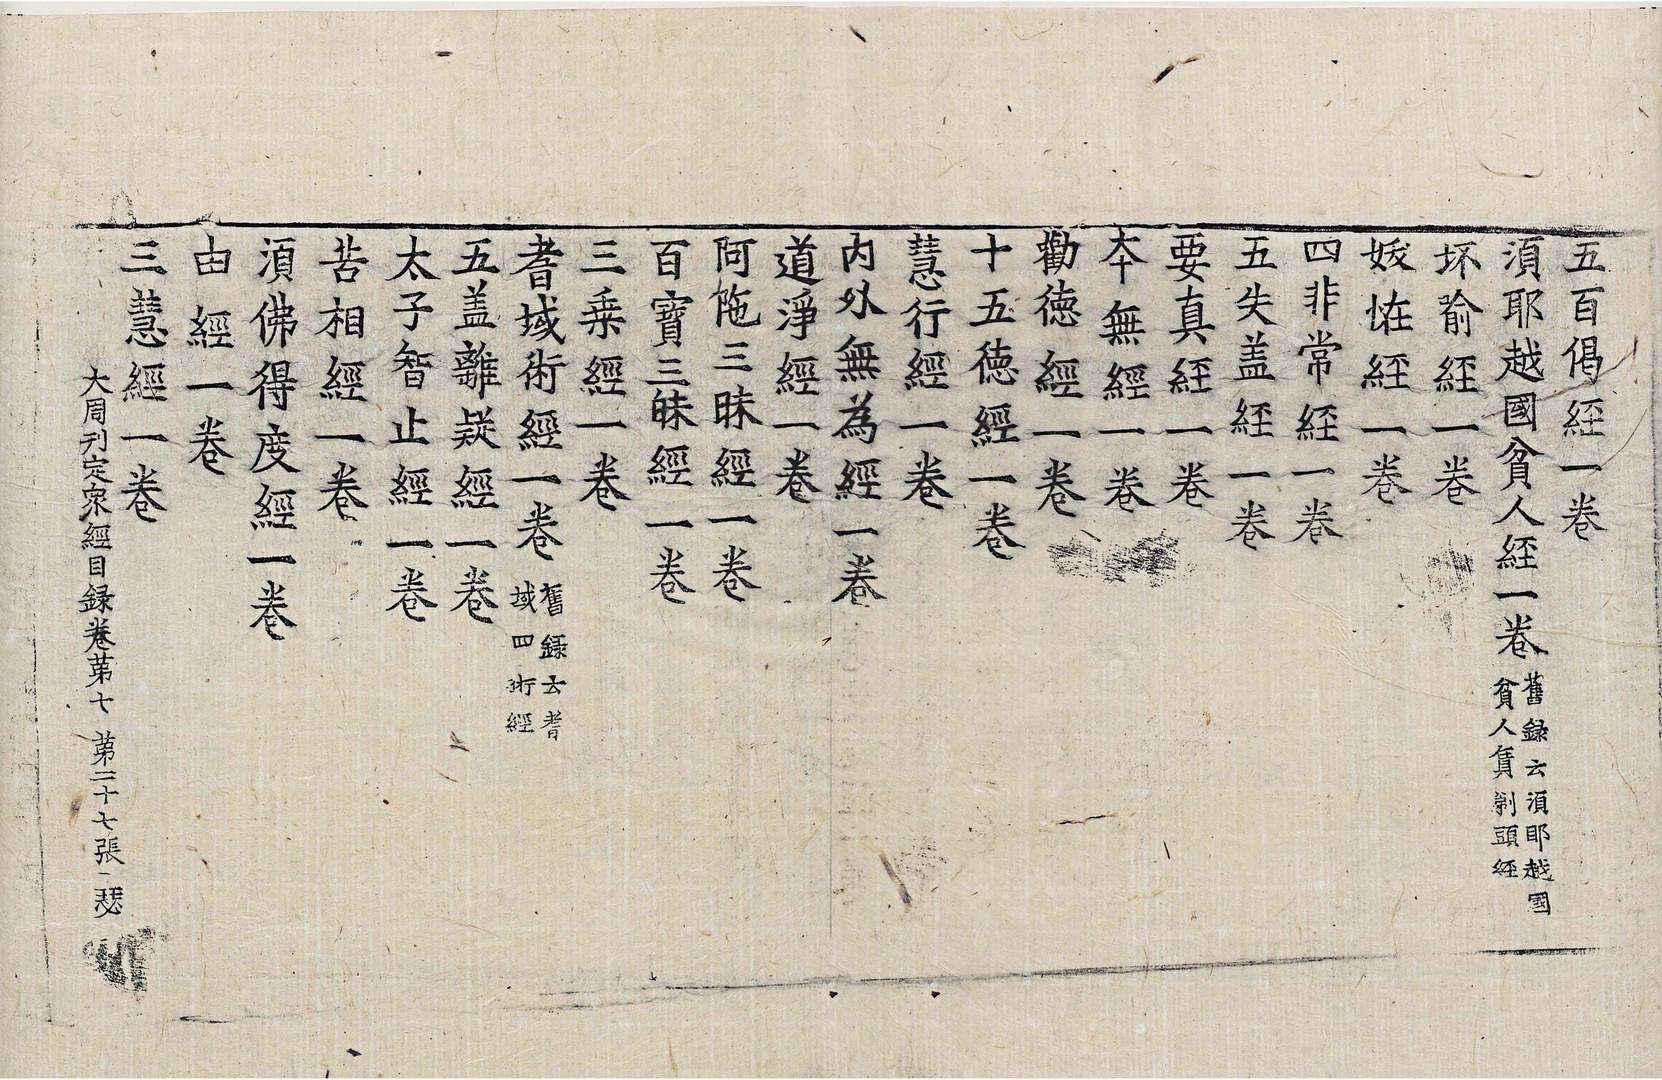 五百偈經一卷
湏耶越國貧人經一卷 舊錄云湏耶越國貧人賃剃頭經
坏喻經一卷
妭恠經一卷
四非常經一卷
五失盖經一卷
要真經一卷
夲無經一卷
勸徳經一卷
十五徳經一卷
慧行經一卷
内外無為經一卷
道淨經一卷
阿陁三昧經一卷
百寳三昧經一卷
三乗經一卷
耆域術經一卷 舊錄云耆域四術經
五盖離疑經一卷
太子智止經一卷
苦相經一卷
湏佛得度經一卷
由經一卷
三慧經一卷
大周刊定衆經目録卷苐七 苐二十七張 瑟